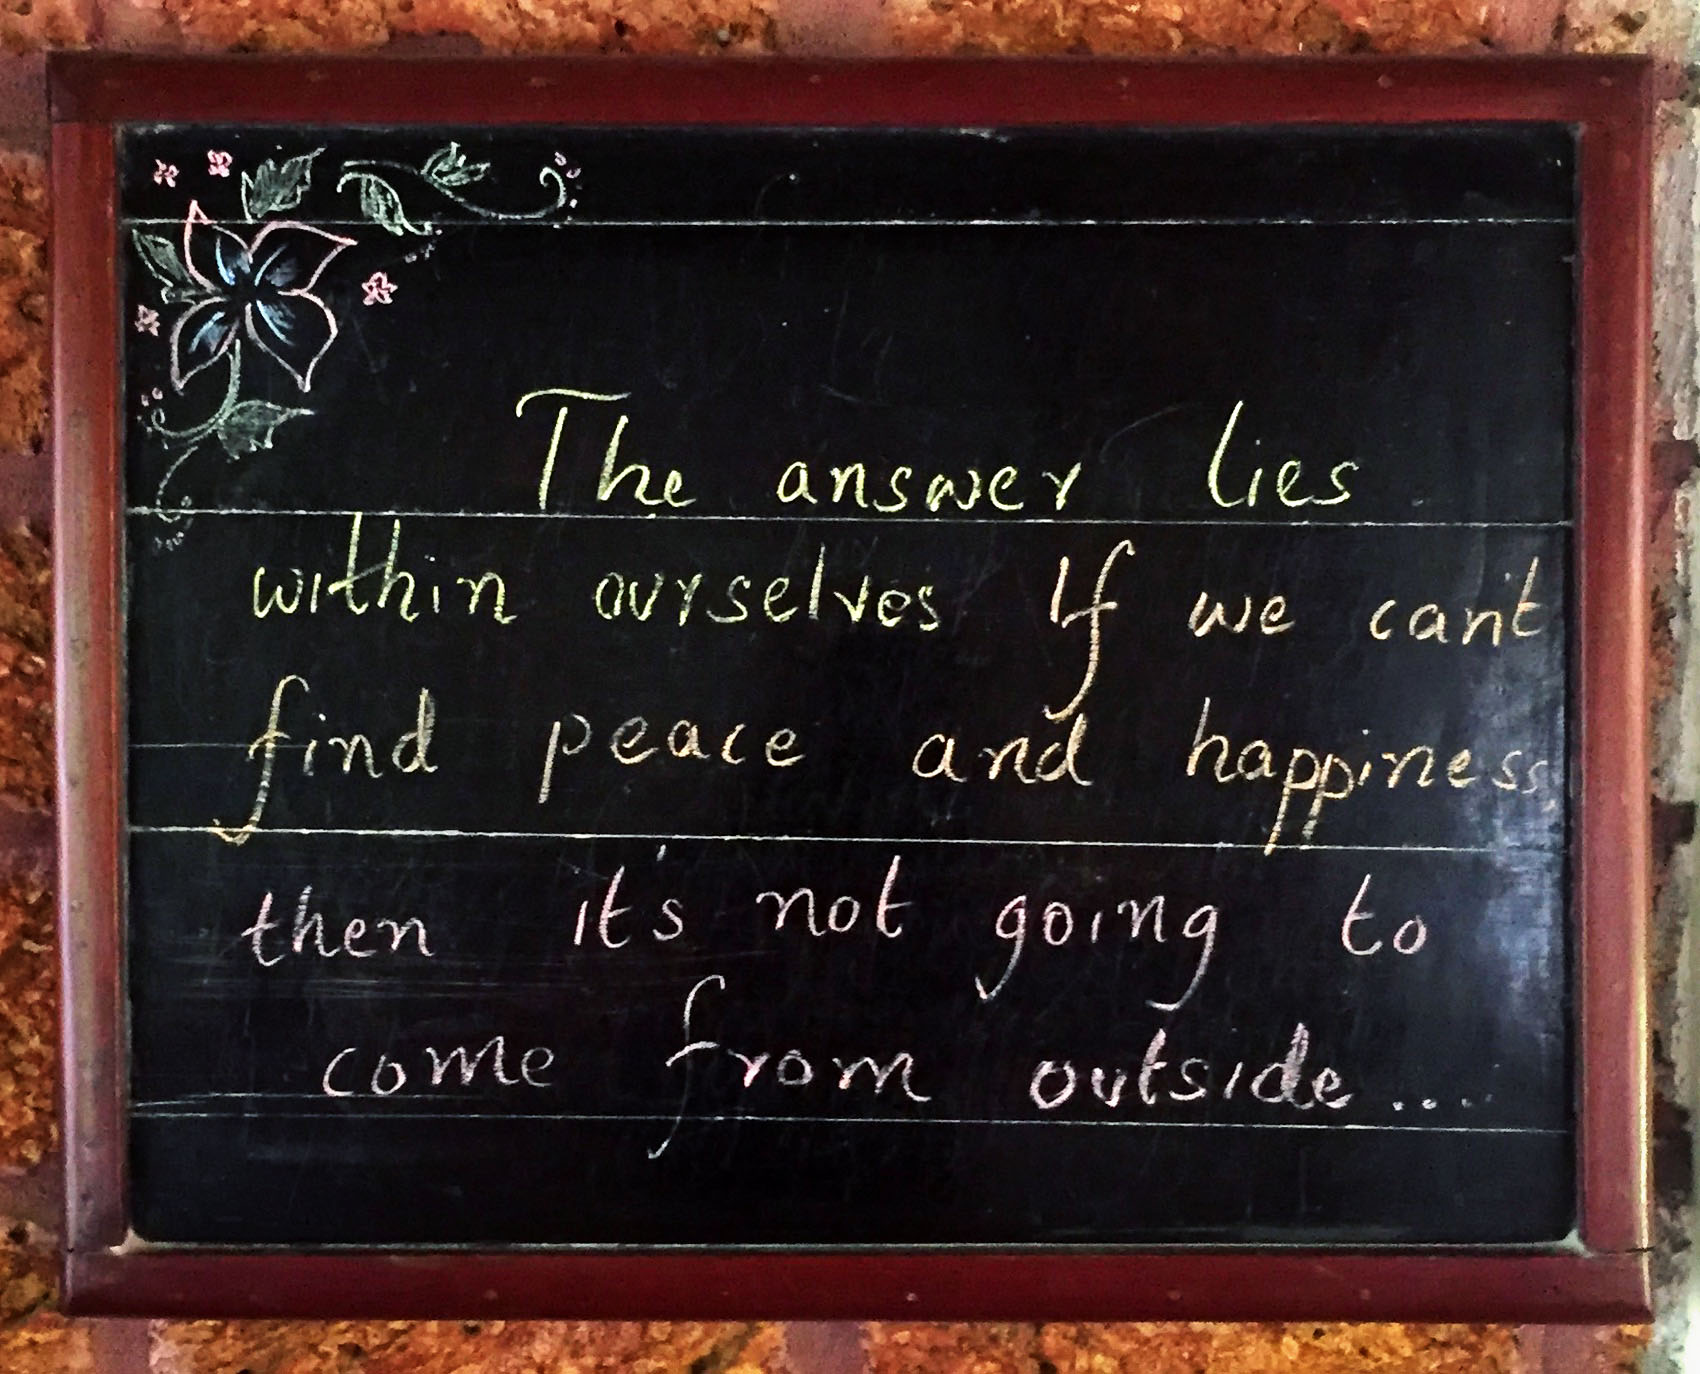 The answer lies
within ourselves If we can't
find peace and happiness,
then it's not going to
come from outside....